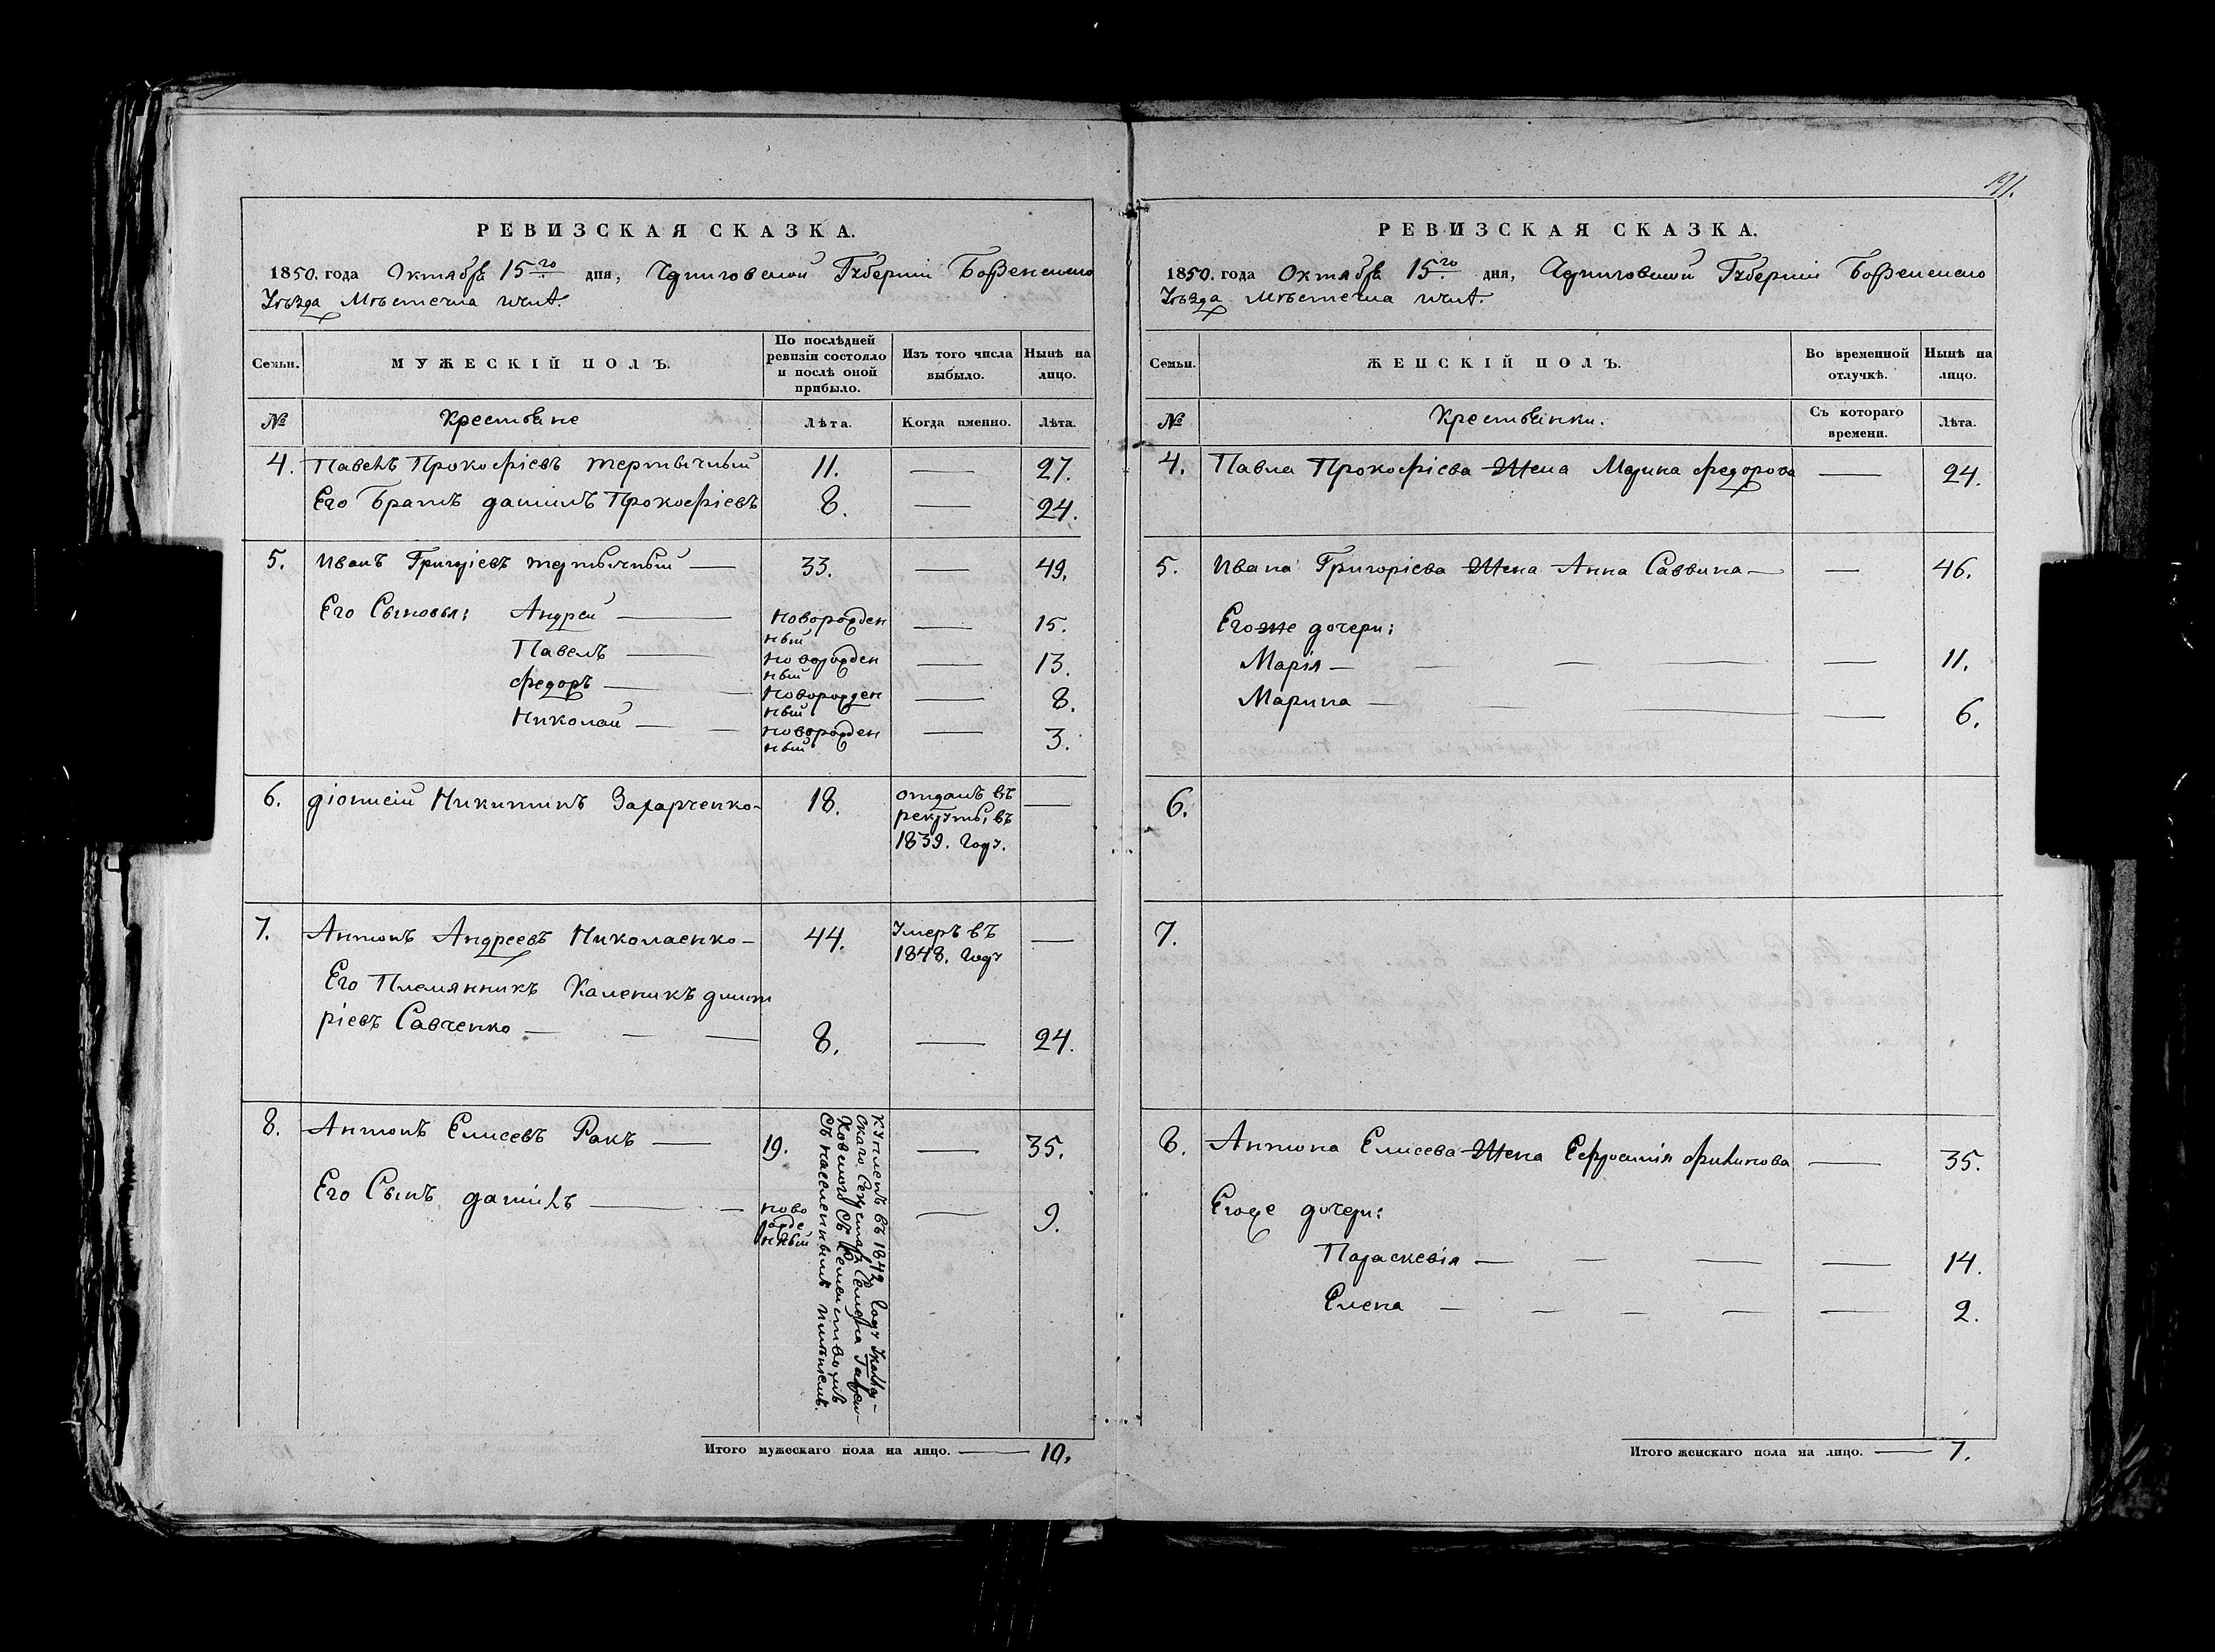 191.
РЕВИЗСКАЯ СКАЗКА.
1850. года Октября 15го дня, Черниговской Губерніи Борзенскаго
Уѣзда Мѣстечка
Семьи. МУЖЕСКІЙ ПОЛЪ. По послѣдней ревизіи состояло и послѣ оной прибыло. Изъ того числа выбыло. Нынѣ на лицо.
№ Крестьяне Лѣта. Когда именно. Лѣта.
4. Павелъ Прокофіевъ Тертычный 11. — 27.
Его Братъ Даніилъ Прокофіевъ 8. — 24.
5. Иванъ Григоріевъ Тертычный — 33. — 49.
Его Сыновья: Андрей — Новорожденный — 15.
Павелъ — Новорожденный — 13.
Федоръ — Новорожденный — 8.
Николай — Новорожденный — 3.
6. Діонисій Никитинъ Захарченко 18. отданъ въ рекруты въ 1839. Году. —
7. Антонъ Андреевъ Николаенко — 44. Умеръ въ 1848. Году —
Его Племянникъ Каленикъ Дмит
ріевъ Савченко — 8. — 24.
8. Антонъ Елисеевъ Ракъ — 19. — 35.
Его Сынъ Даніилъ — ново
рожде
нный — 9.
Купленъ въ 1842 Году
скаго Семена
ковского съ Семействомъ
съ населеннымъ имѣніемъ.
Итого мужескаго пола на лицо. — 10.
РЕВИЗСКАЯ СКАЗКА.
1850. года Октября 15го дня, Черниговской Губерніи Борзенскаго
Уѣзда Мѣстечка
Семьи. ЖЕНСКІЙ ПОЛЪ. Во временной отлучкѣ. Нынѣ на лицо.
№ Крестьянки. Съ котораго времени. Лѣта.
4. Павла Прокофіева Жена Марина Федорова — 24.
5. Ивана Григоріева Жена Анна Саввина — — 46.
Егоже дочери:
Марія — — 11.
Марина — — 6.
6.
7.
8. Антона Елисеева Жена Ефросинія Филипова — 35.
Егоже дочери:
Параскевія — — 14.
Елена — — 2.
Итого женскаго пола на лицо. — 7.